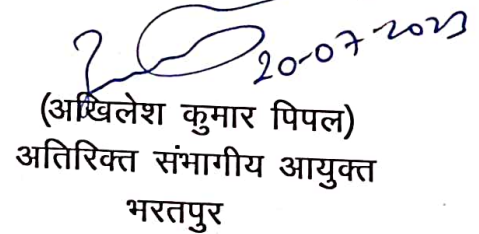 20-07-2023
(अखिलेश कुमार पिपल)
अतिरिक्त संभागीय आयुक्त
भरतपुर